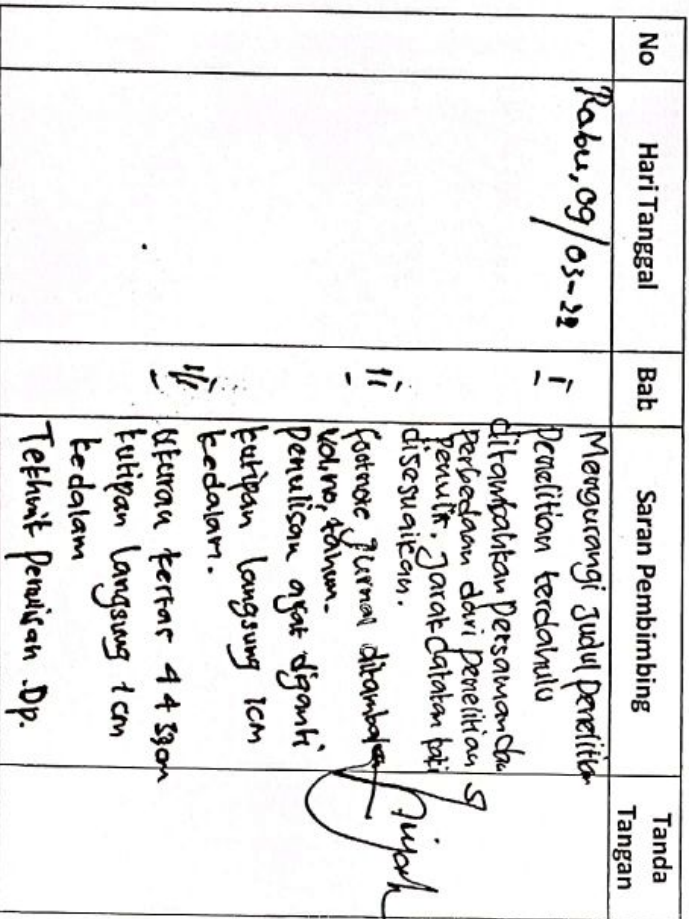 No
Hari Tanggal
Bab
Saran Pembimbing
Tanda
Tangan
Rabu, 09/03-22
I
Mengurangi Judul penelitian
penelitian terdahulu
ditambahkan Persamaan dan
perbedaan dari penelitian
penulis. Jarak catatan kaki
disesuaikan.
II
footnote jurnal ditambahkan
vol, no, tahun.
penulisan ayat diganti
kutipan langsung 1cm
kedalam.
III
Ukuran kertas 4433
kutipan langsung 1 cm
kedalam
Tekhnik Penulisan .Dp.